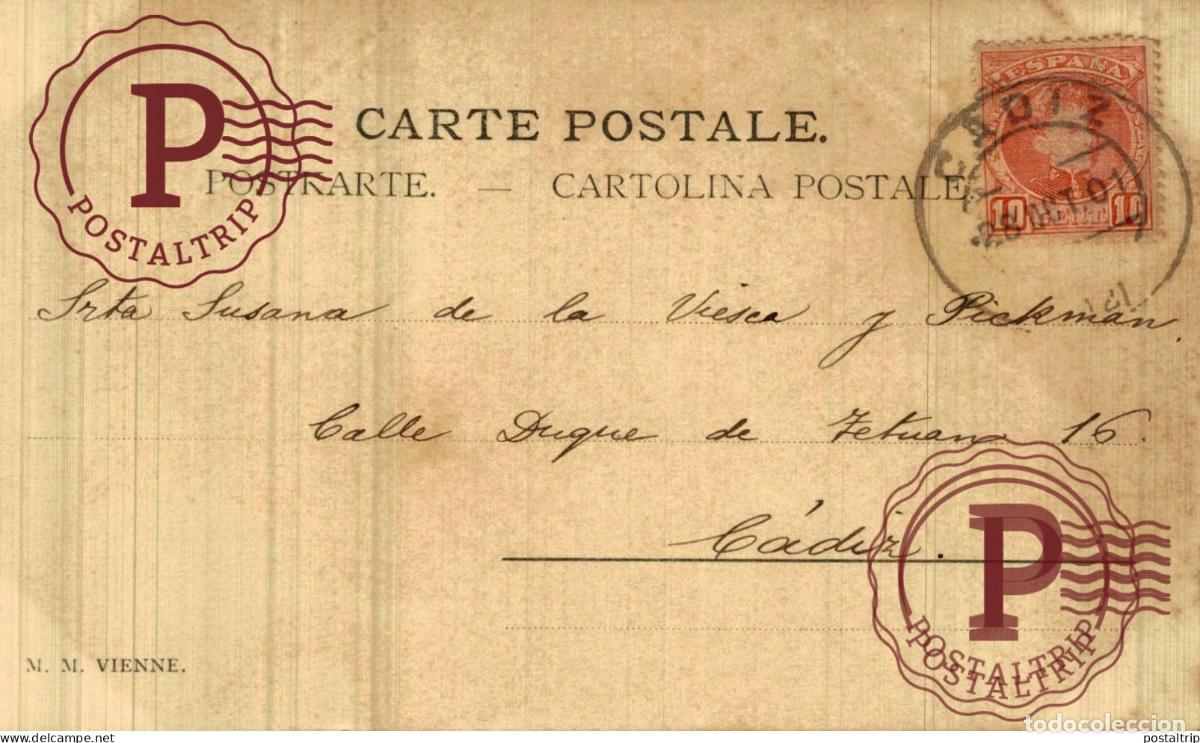 CARTE POSTALE.
POSTKARTE. — CARTOLINA POSTALE
ESPAÑA
CADIZ
28 OCT. 01
10 CENT. 10
P
POSTALTRIP
Srta Susana de la Viesca y Pickman.
Calle Duque de Tetuan 16.
Cádiz.
P
POSTALTRIP
POSTALTRIP
M. M. VIENNE.
todocoleccion
www.delcampe.net
postaltrip